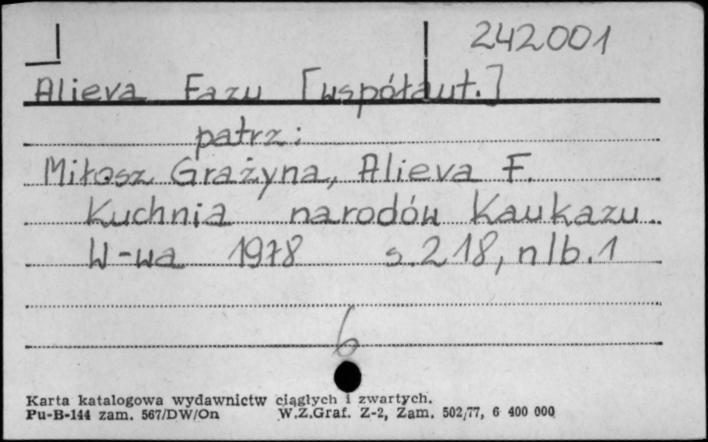 242001
Alieva Fazu [współaut.]
patrz:
Miłosz Grażyna, Alieva F.
Kuchnia narodów Kaukazu
W-wa 1978 s. 218, nlb. 1
6
Karta katalogowa wydawnictw ciągłych i zwartych.
Pu-B-144 zam. 567/DW/On W.Z.Graf. Z-2, Zam. 502/77, 6 400 000